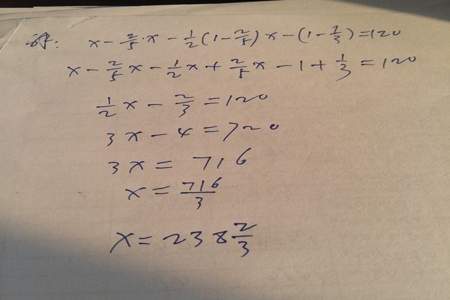 解: x - 2/5·x - 1/2(1 - 2/5)x - (1 - 1/3) = 120
x - 2/5x - 1/2x + 2/5x - 1 + 1/3 = 120
1/2x - 2/3 = 120
3x - 4 = 720
3x = 716
x = 716/3
x = 238 2/3